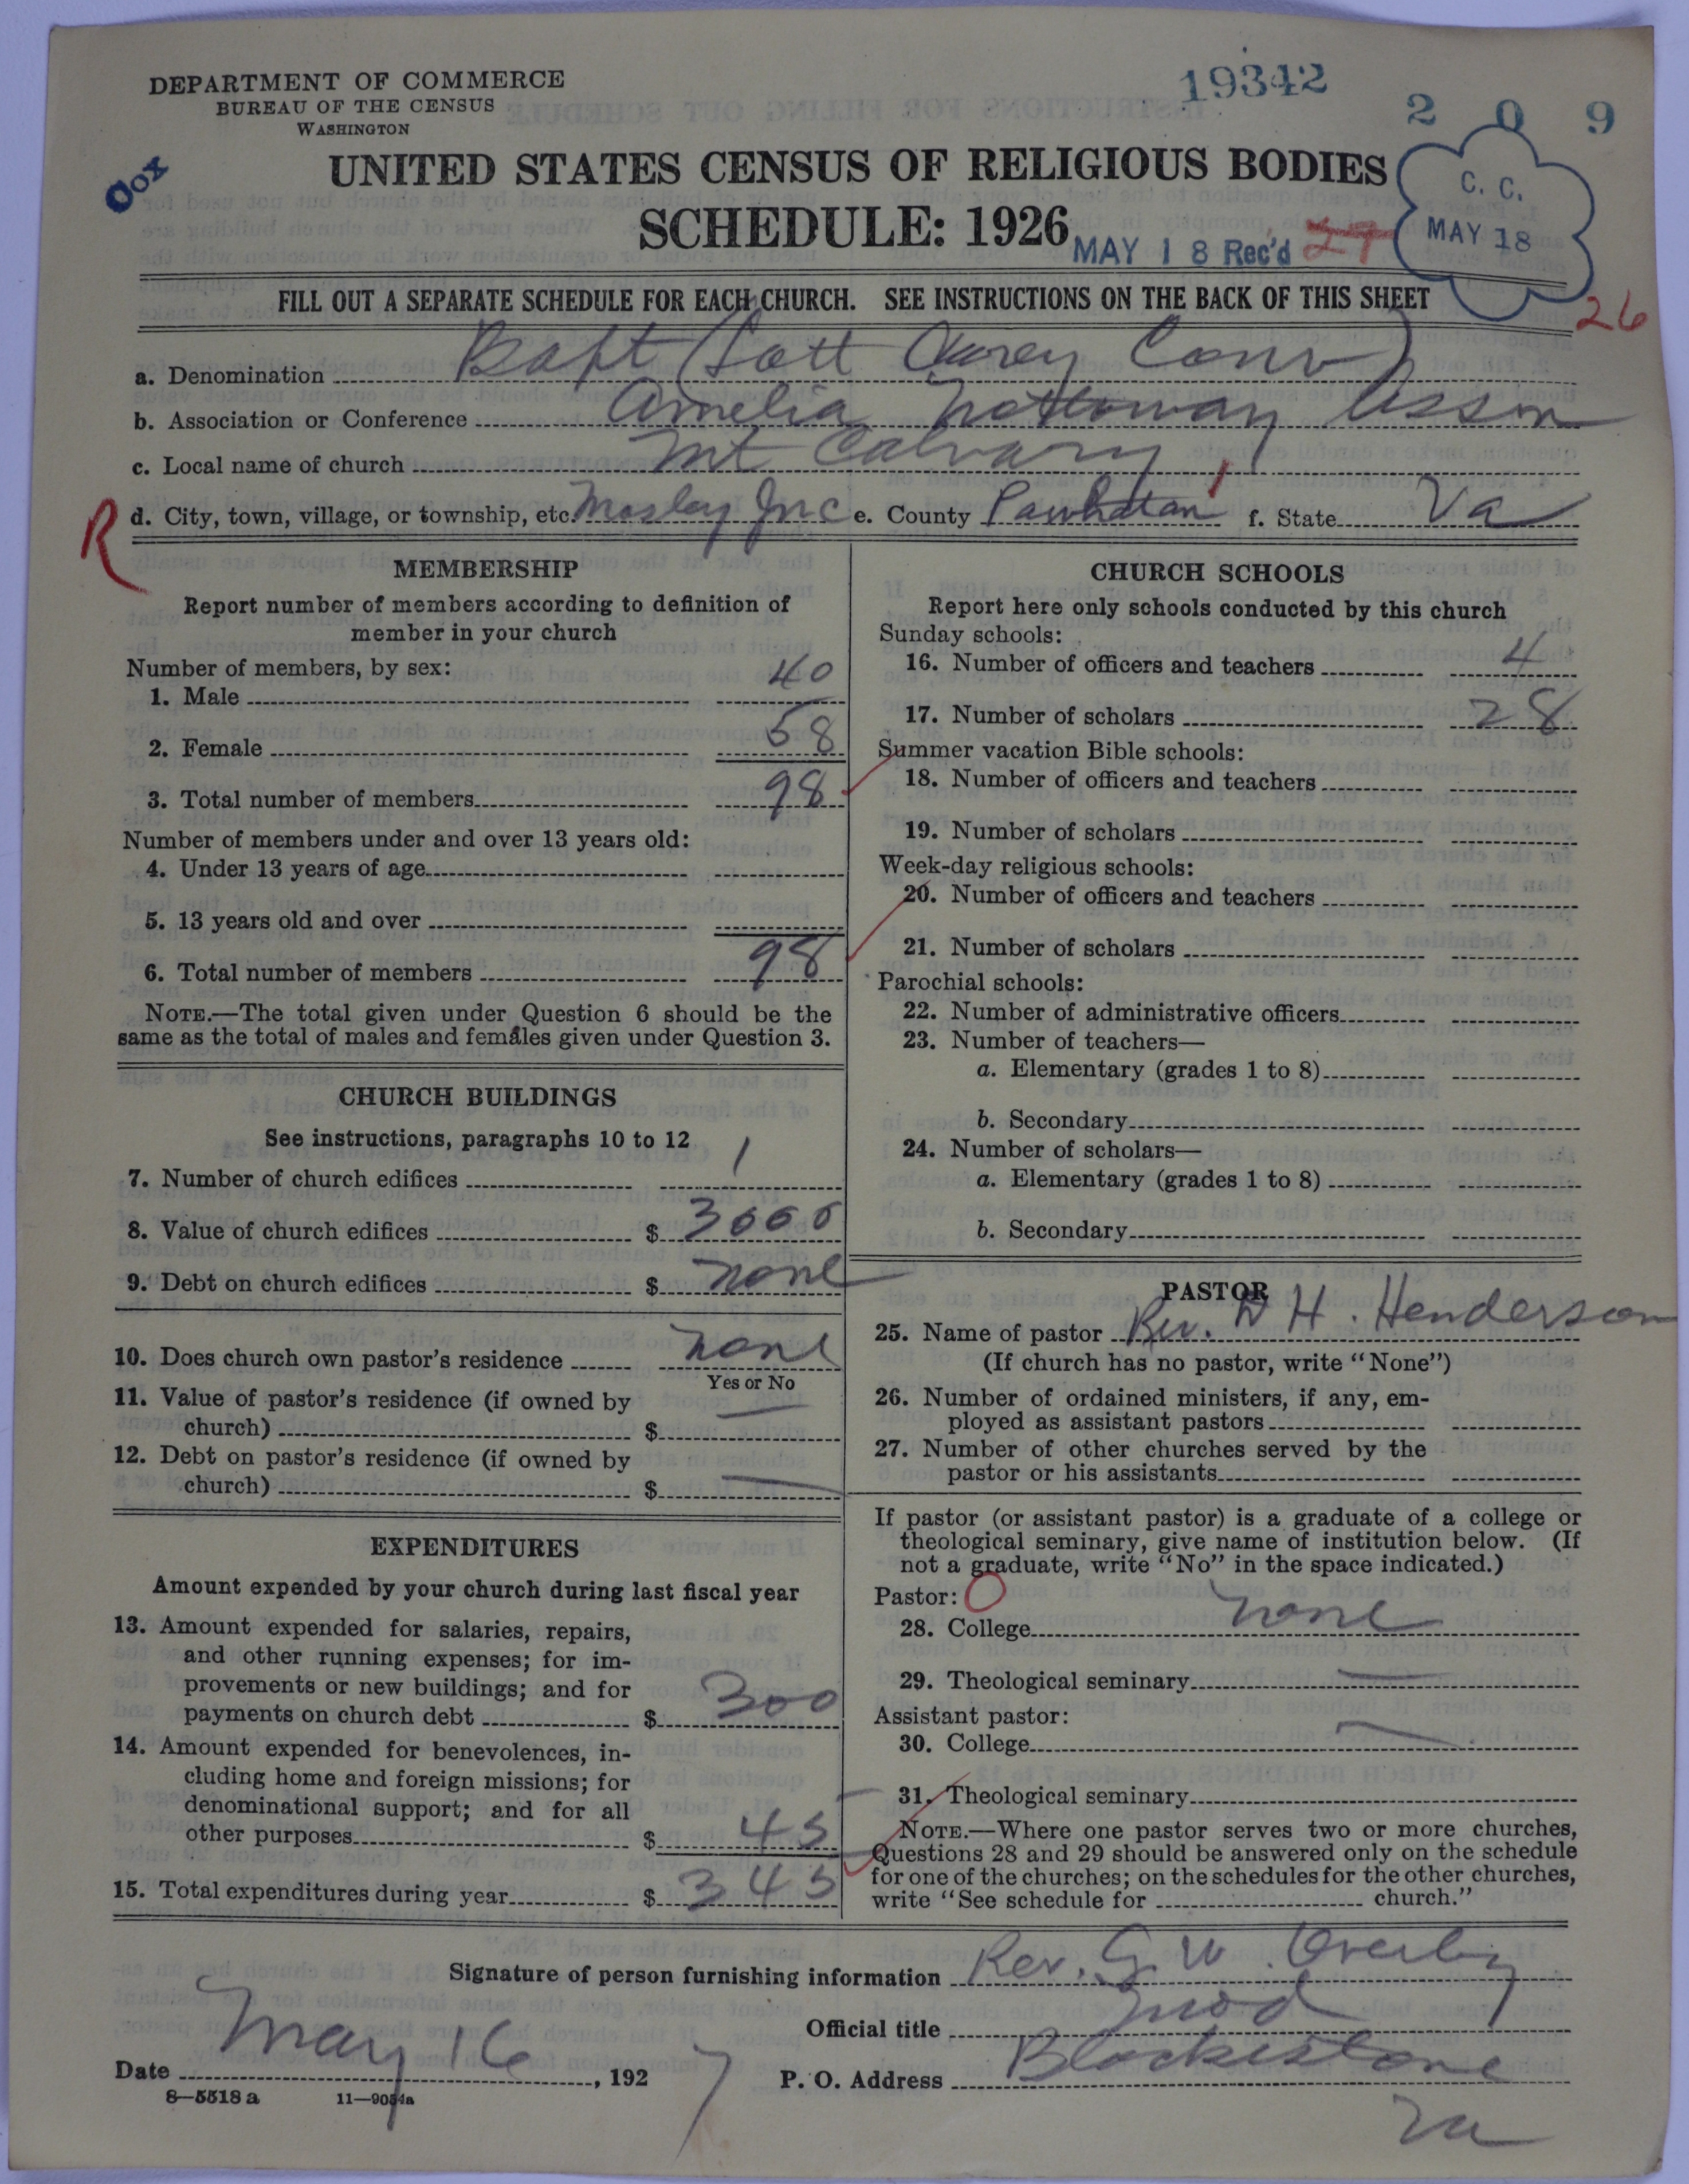 DEPARTMENT OF COMMERCE
BUREAU OF THE CENSUS
WASHINGTON
19342
209
Cox
UNITED STATES CENSUS OF RELIGIOUS BODIES
SCHEDULE: 1926
MAY 18 Rec'd 27
C. C.
MAY 18
FILL OUT A SEPARATE SCHEDULE FOR EACH CHURCH. SEE INSTRUCTIONS ON THE BACK OF THIS SHEET
26
a. Denomination Bapt (Lott Carey Conv)
b. Association or Conference Amelia Nottoway Asson
c. Local name of church Mt Calvary
R
d. City, town, village, or township, etc. Mosley Junc e. County Powhatan f. State Va
MEMBERSHIP
Report number of members according to definition of
member in your church
Number of members, by sex:
1. Male 40
2. Female 58
3. Total number of members 98
Number of members under and over 13 years old:
4. Under 13 years of age
5. 13 years old and over
6. Total number of members 98
NOTE.—The total given under Question 6 should be the
same as the total of males and females given under Question 3.
CHURCH BUILDINGS
See instructions, paragraphs 10 to 12
7. Number of church edifices 1
8. Value of church edifices $ 3000
9. Debt on church edifices $ none
10. Does church own pastor's residence none
Yes or No
11. Value of pastor's residence (if owned by
church) $ —
12. Debt on pastor's residence (if owned by
church) $ —
EXPENDITURES
Amount expended by your church during last fiscal year
13. Amount expended for salaries, repairs,
and other running expenses; for im-
provements or new buildings; and for
payments on church debt $ 300
14. Amount expended for benevolences, in-
cluding home and foreign missions; for
denominational support; and for all
other purposes $ 45
15. Total expenditures during year $ 345
CHURCH SCHOOLS
Report here only schools conducted by this church
Sunday schools:
16. Number of officers and teachers 4
17. Number of scholars 28
Summer vacation Bible schools:
18. Number of officers and teachers
19. Number of scholars
Week-day religious schools:
20. Number of officers and teachers
21. Number of scholars
Parochial schools:
22. Number of administrative officers
23. Number of teachers—
a. Elementary (grades 1 to 8)
b. Secondary
24. Number of scholars—
a. Elementary (grades 1 to 8)
b. Secondary
PASTOR
25. Name of pastor Rev. D H. Henderson
(If church has no pastor, write "None")
26. Number of ordained ministers, if any, em-
ployed as assistant pastors
27. Number of other churches served by the
pastor or his assistants
If pastor (or assistant pastor) is a graduate of a college or
theological seminary, give name of institution below. (If
not a graduate, write "No" in the space indicated.)
Pastor: O
28. College none
29. Theological seminary —
Assistant pastor:
30. College —
31. Theological seminary
NOTE.—Where one pastor serves two or more churches,
Questions 28 and 29 should be answered only on the schedule
for one of the churches; on the schedules for the other churches,
write "See schedule for church."
Signature of person furnishing information Rev. G. W. Overby
Official title Mod
Date May 16, 1927 P. O. Address Blackstone
Va
8—5518a 11—9054a